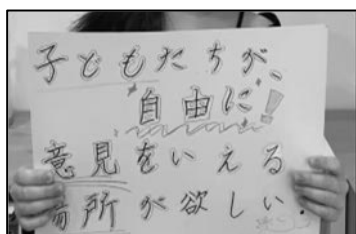 子どもたちが、
自由に!
意見をいえる
場所が欲しい。